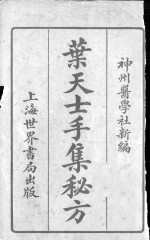 神州醫學社新編
葉天士手集秘方
上海世界書局出版